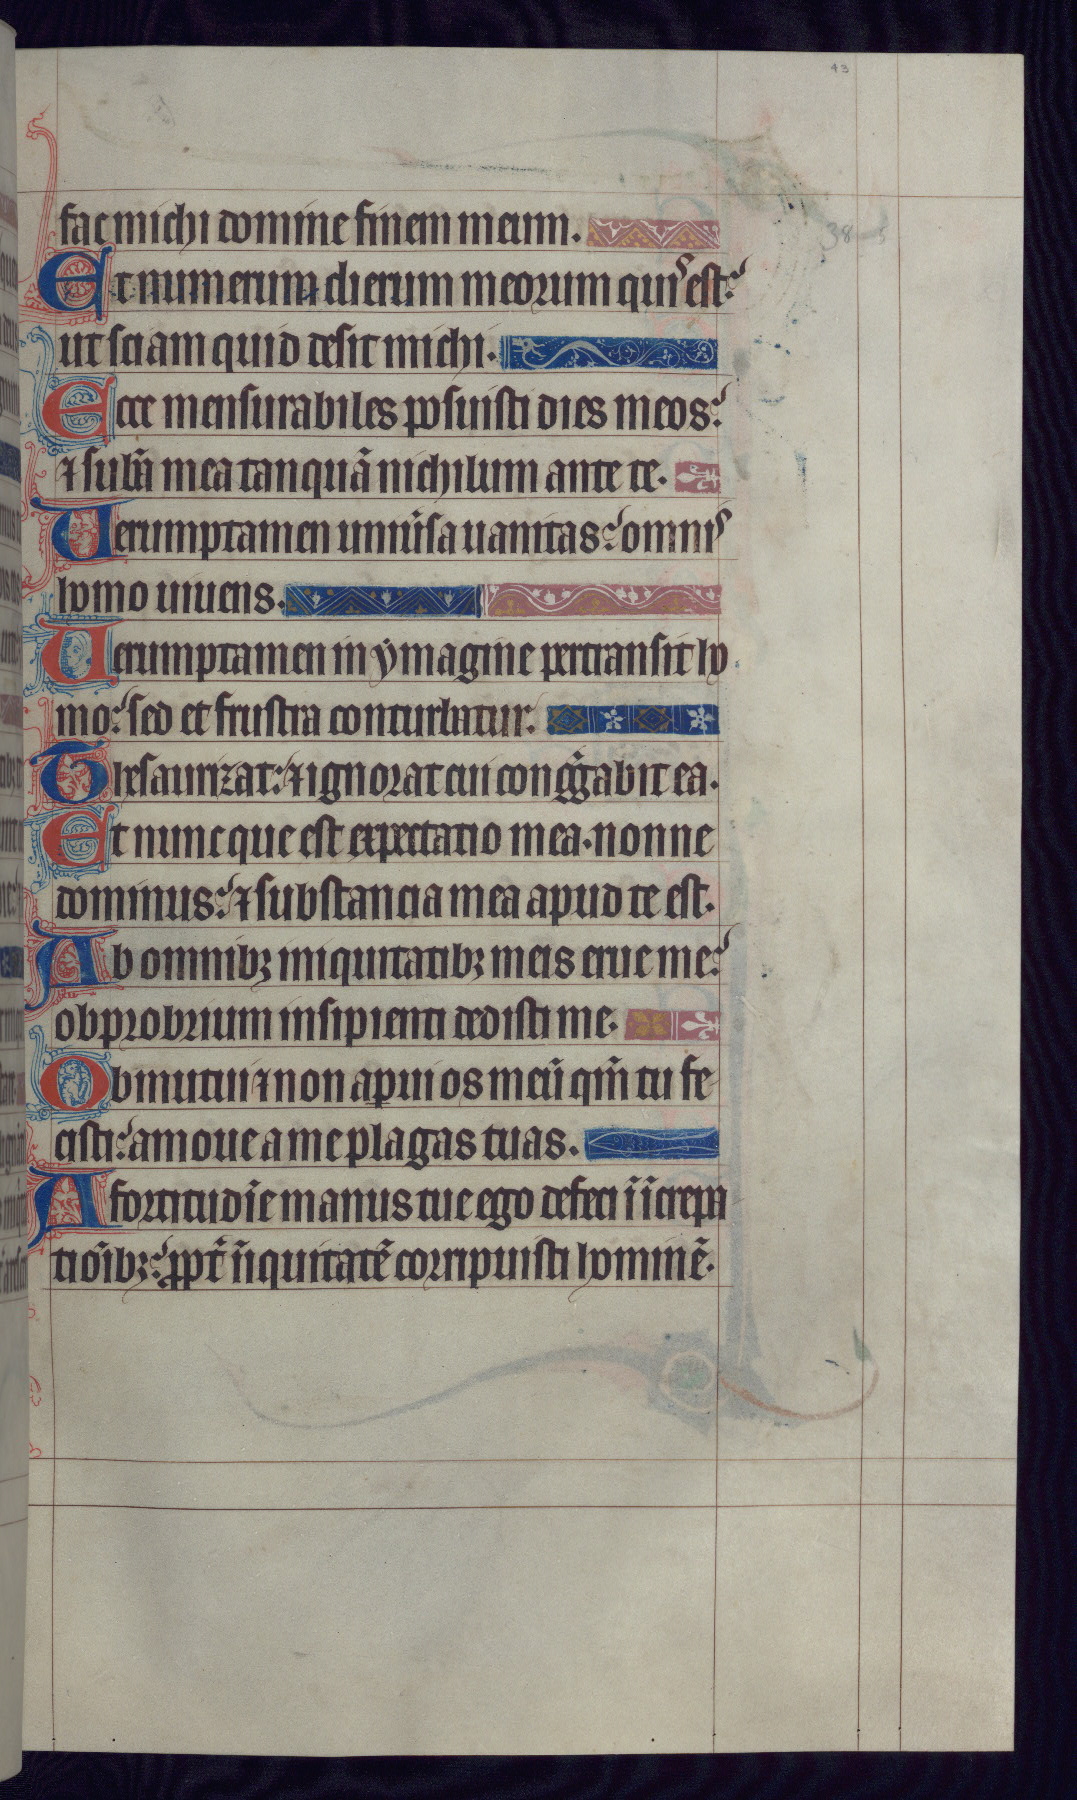 43
38-5
fac michi domine finem meum.
Et numerum dierum meorum quis est:
ut sciam quid desit michi.
Ecce mensurabiles posuisti dies meos:
⁊ sub̄a mea tanquā nichilum ante te.
Uerumptamen uniu̅sa uanitas: omnis
homo uiuens.
Uerumptamen in ymagine pertransit ho
mo: sed et frustra conturbatur.
Thesaurizat: ⁊ ignorat cui congg̅abit ea.
Et nunc que est expectatio mea. nonne
dominus: ⁊ substancia mea apud te est.
Ab omnibꝫ iniquitatibꝫ meis erue me:
obprobrium insipienti dedisti me.
Obmutui ⁊ non aperui os meū qm̄ tu fe
cisti: amoue a me plagas tuas.
A fortitudīe manus tue ego defeci ī īcrepa
tiōibꝫ: ꝓpt̄ īiquitatē corripuisti hominē.